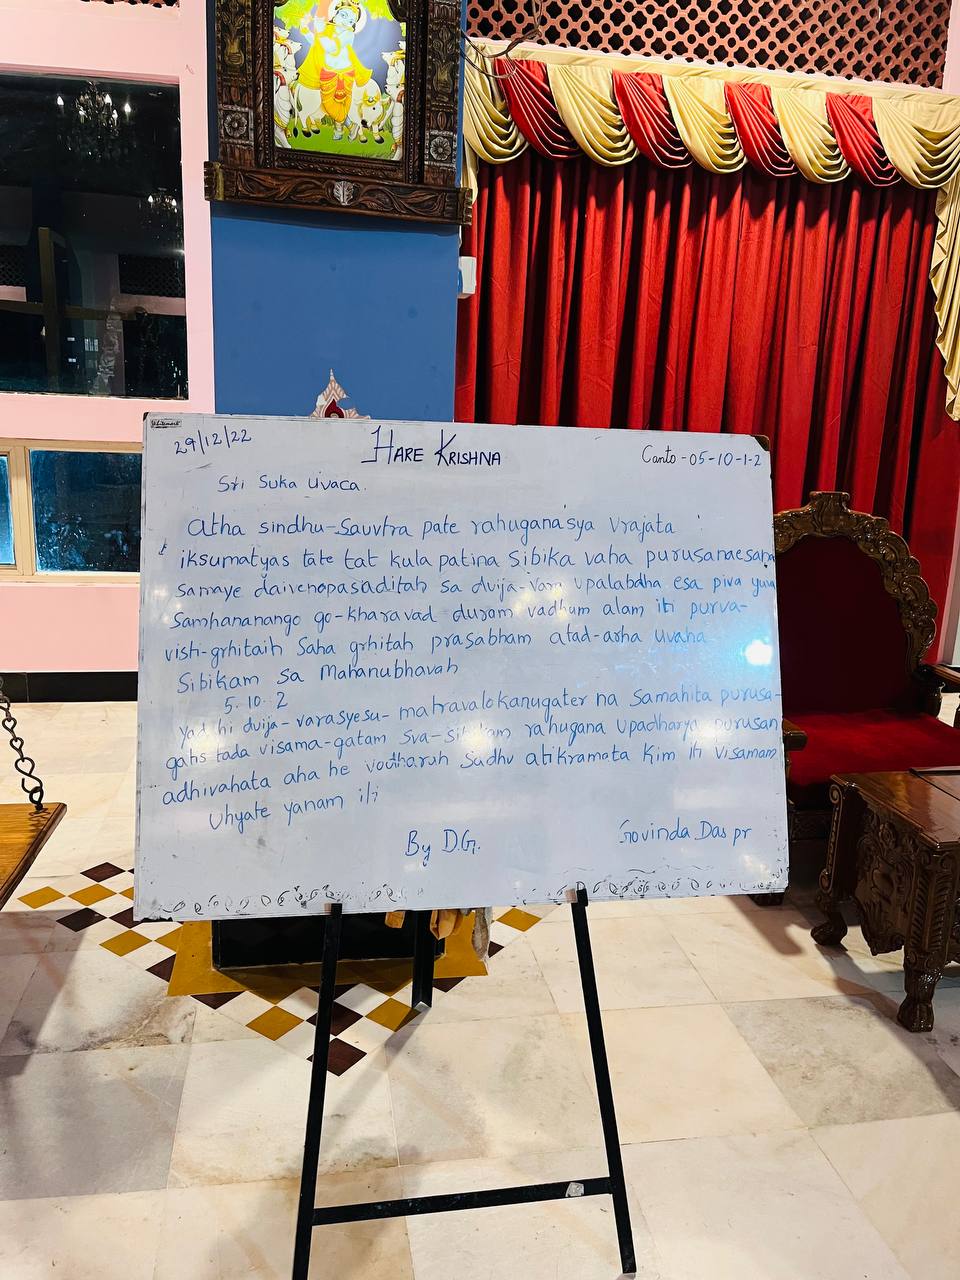 Whitemark
29/12/22
HARE KRISHNA
Canto - 05-10-1-2
Sri Suka Uvaca.
Atha sindhu-Sauvtra pate rahugana'sya Vrajata
iksumatyas tate tat kula patina Sibika vaha purusanaesana
Samaye daivenopasaditah sa dvija-Vara upalabdha esa piva yuva
Samhananango go-kharavad duram vadhum alam iti purva-
visti-grhitaih Saha grhitah prasabham atad-arha Uvaha
Sibikam sa Mahanubhavah
5.10.2
Yad hi dvija-varasyesu-matravalokanugater na Samahita purusa-
gatis tada visama-gatam Sva-sibikam rahugana upadharya purusan
adhivahata aha he vodharuh Sadhv atikramata Kim iti visamam
Uhyate yanam iti
By D.G.
Govinda Das pr